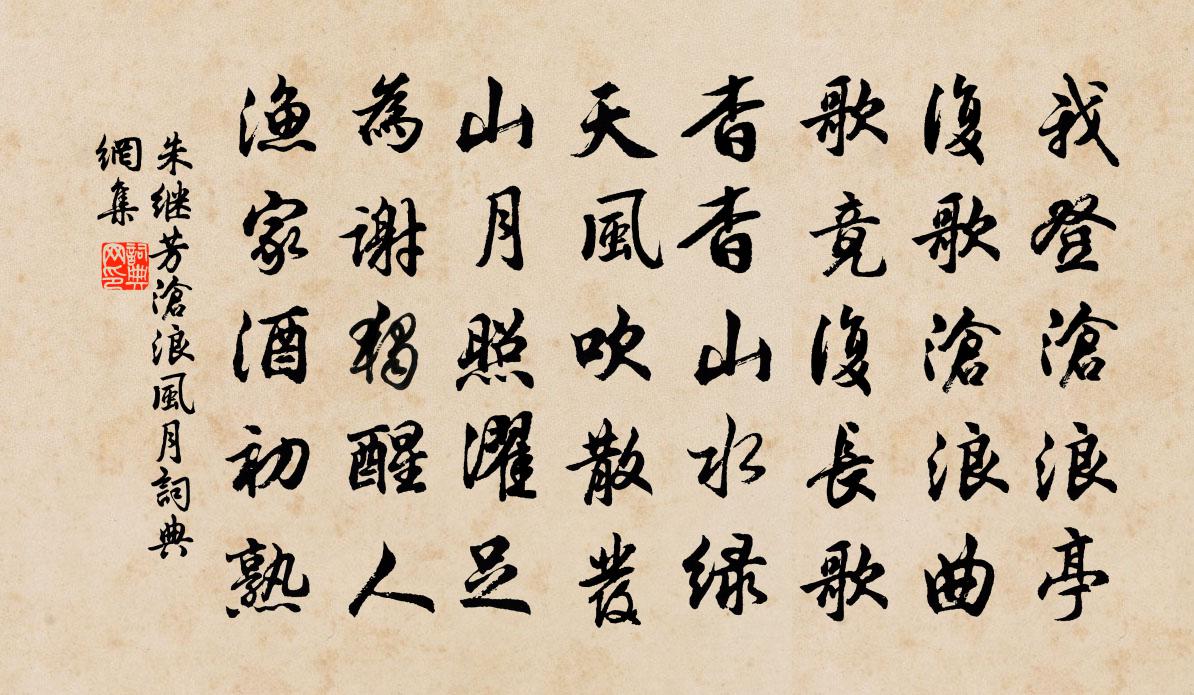 我登滄浪亭
復歌滄浪曲
歌竟復長歌
杳杳山水绿
天風吹散發
山月照濯足
為謝獨醒人
漁家酒初熟
朱继芳滄浪風月詞典
網集
詞典
网印